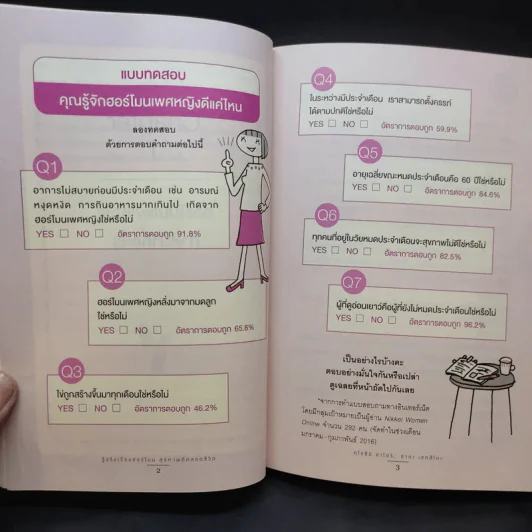 แบบทดสอบ
คุณรู้จักฮอร์โมนเพศหญิงดีแค่ไหน
ลองทดสอบ
ด้วยการตอบคำถามต่อไปนี้
Q1
อาการไม่สบายก่อนมีประจำเดือน เช่น อารมณ์
หงุดหงิด การกินอาหารมากเกินไป เกิดจาก
ฮอร์โมนเพศหญิงใช่หรือไม่
YES □ NO □ อัตราการตอบถูก 91.8%
Q2
ฮอร์โมนเพศหญิงหลั่งมาจากมดลูก
ใช่หรือไม่
YES □ NO □ อัตราการตอบถูก 65.8%
Q3
ไข่ถูกสร้างขึ้นมาทุกเดือนใช่หรือไม่
YES □ NO □ อัตราการตอบถูก 46.2%
รู้จริงเรื่องฮอร์โมน สุขภาพดีตลอดชีวิต
2
Q4
ในระหว่างมีประจำเดือน เราสามารถตั้งครรภ์
ได้ตามปกติใช่หรือไม่
YES □ NO □ อัตราการตอบถูก 59.9%
Q5
อายุเฉลี่ยขณะหมดประจำเดือนคือ 60 ปีใช่หรือไม่
YES □ NO □ อัตราการตอบถูก 84.6%
Q6
ทุกคนที่อยู่ในวัยหมดประจำเดือนจะสุขภาพไม่ดีใช่หรือไม่
YES □ NO □ อัตราการตอบถูก 82.5%
Q7
ผู้ที่ดูอ่อนเยาว์คือผู้ที่ยังไม่หมดประจำเดือนใช่หรือไม่
YES □ NO □ อัตราการตอบถูก 96.2%
เป็นอย่างไรบ้างคะ
ตอบอย่างมั่นใจกันหรือเปล่า
ดูเฉลยที่หน้าถัดไปกันเลย
*จากการทำแบบสอบถามทางอินเทอร์เน็ต
โดยมีกลุ่มเป้าหมายเป็นผู้อ่าน Nikkei Women
Online จำนวน 292 คน (จัดทำในช่วงเดือน
มกราคม-กุมภาพันธ์ 2016)
3